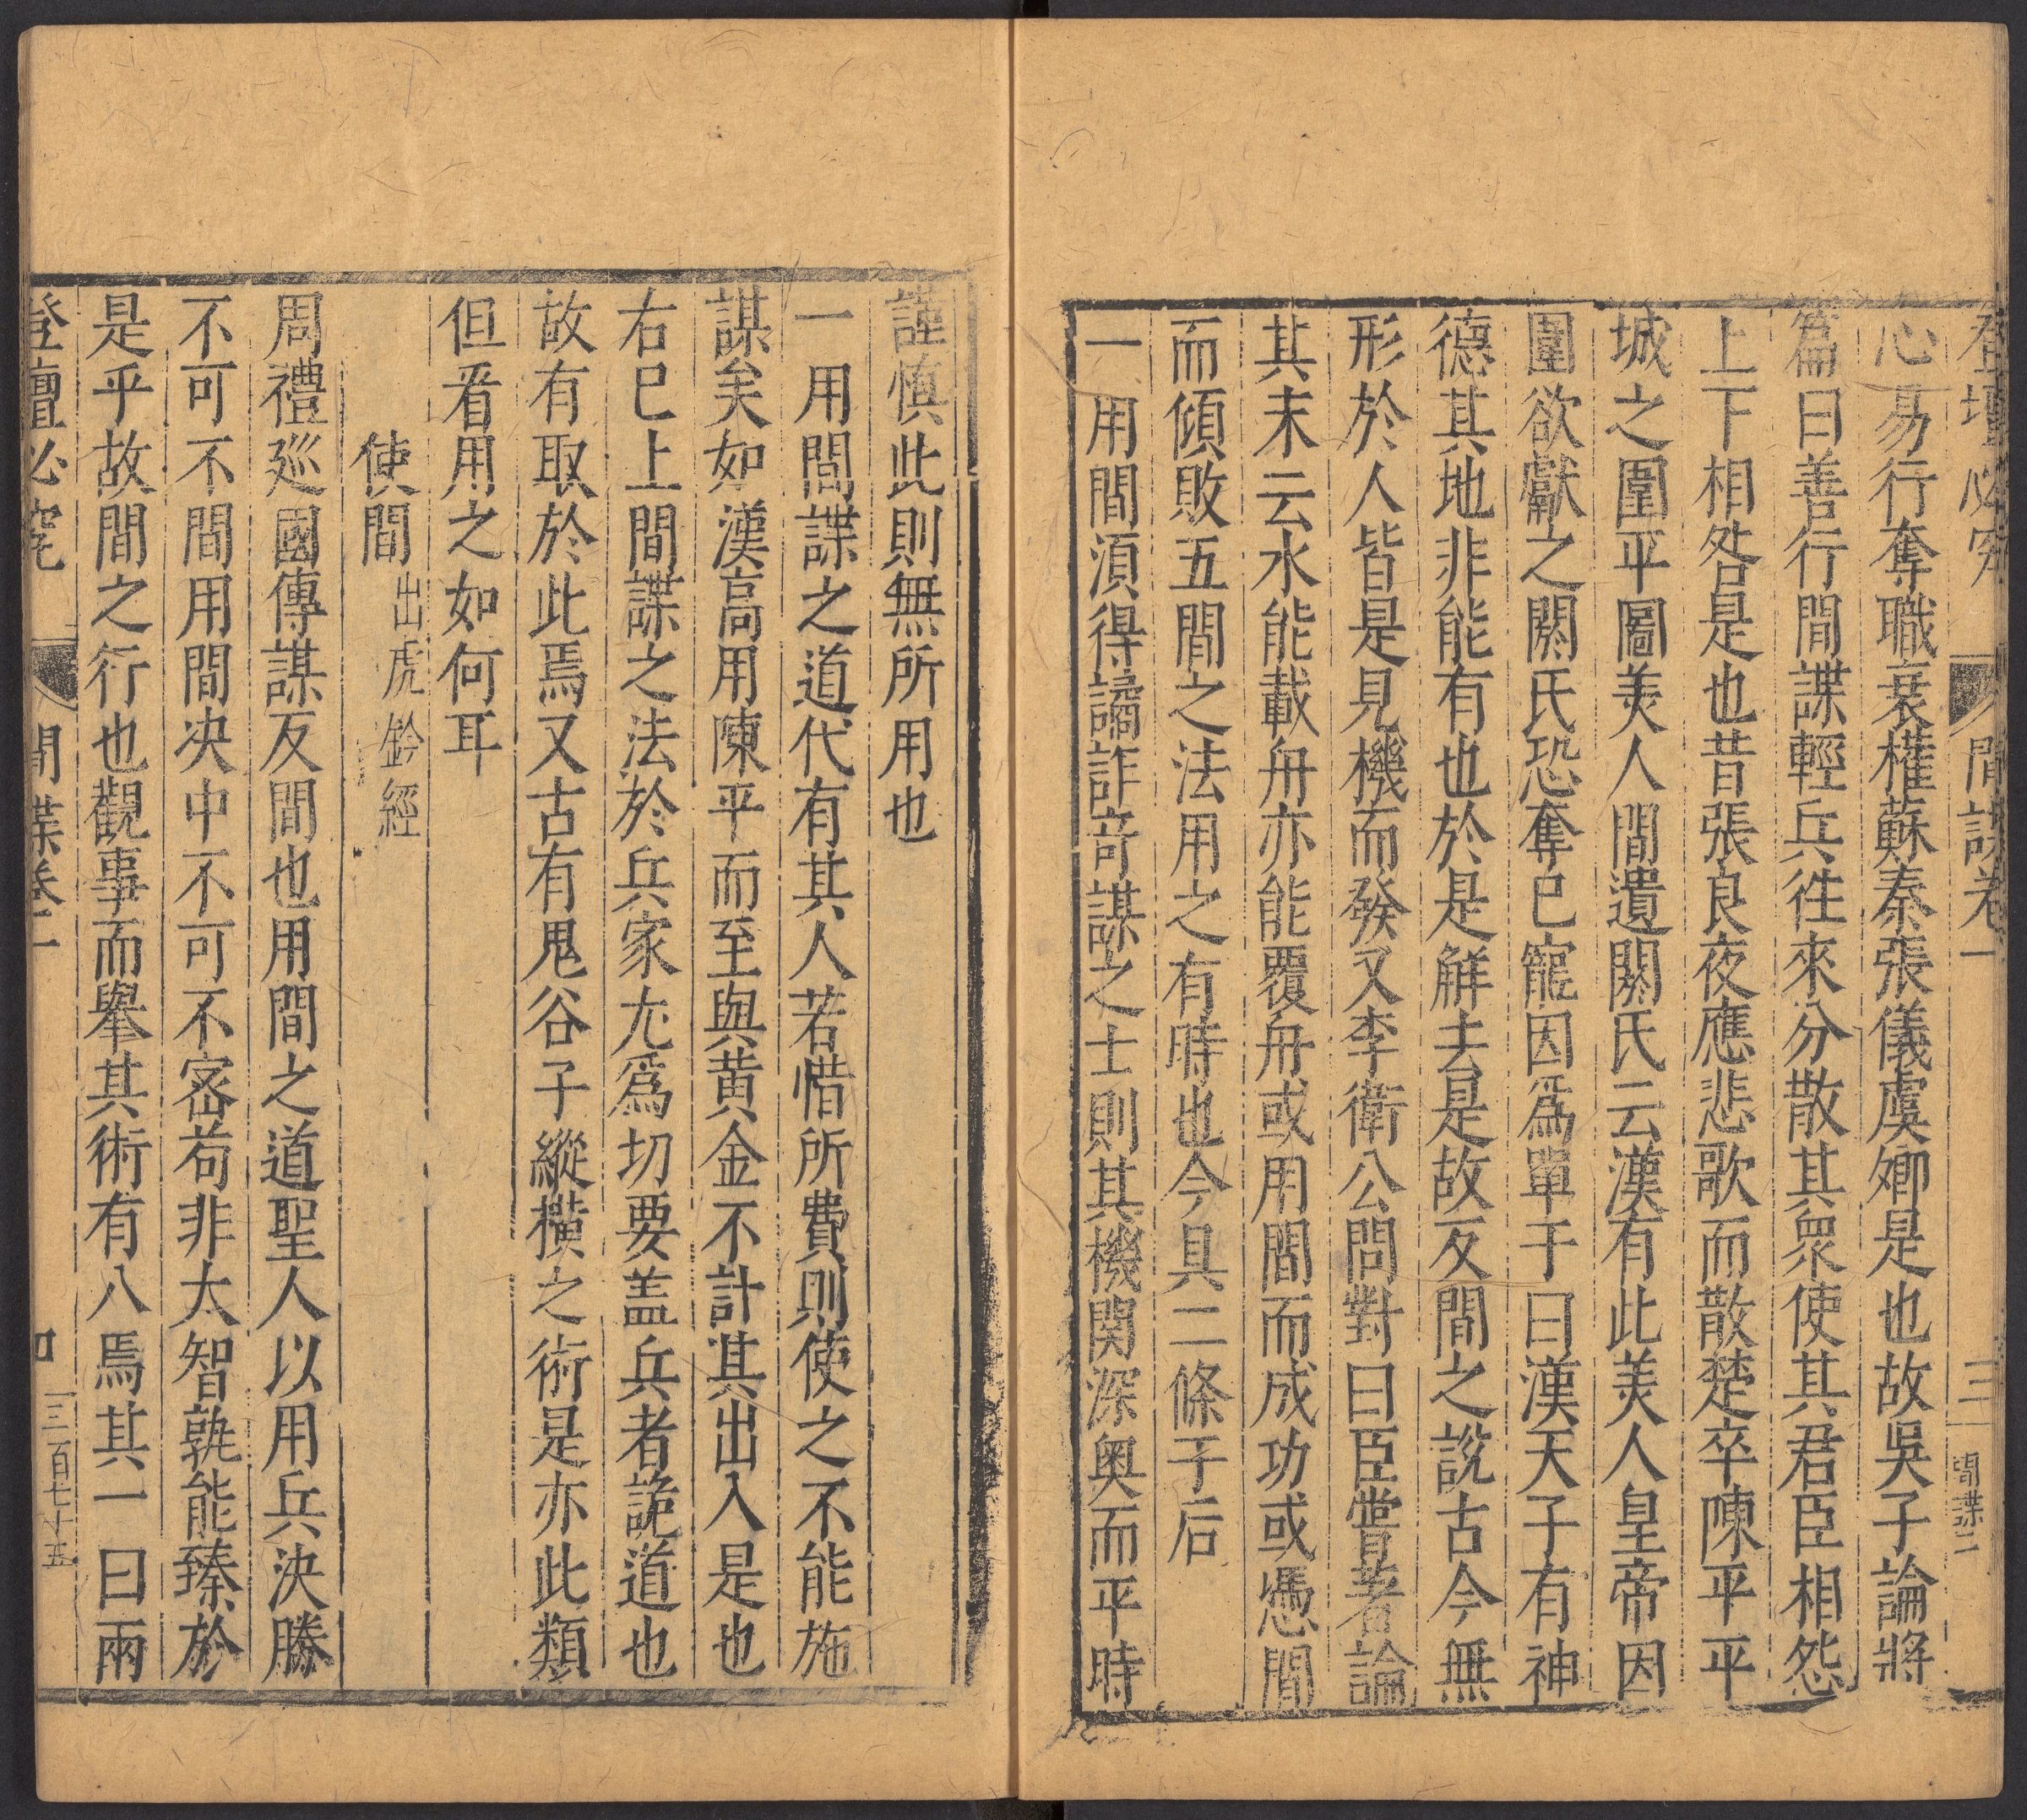 登壇必究 間諜卷一 三 間諜二
心易行奪職衰權蘇秦張儀虞卿是也故吳子論將
篇曰善行間諜輕兵徃來分散其衆使其君臣相怨
上下相咎是也昔張良夜應悲歌而散楚卒陳平平
城之圍平圖美人間遺閼氏云漢有此美人皇帝因
圍欲獻之閼氏恐奪已寵因爲單于曰漢天子有神
德其地非能有也於是觧去是故反間之說古今無
形於人皆是見機而發又李衛公問對曰臣嘗著論
其末云水能載舟亦能覆舟或用間而成功或憑間
而傾敗五間之法用之有時也今具二條于后
一用間湏得譎詐竒謀之士則其機関深奥而平時
謹慎此則無所用也
一用間諜之道代有其人若惜所費則使之不能施
謀矣如漢高用陳平而至與黄金不計其出入是也
右已上間諜之法於兵家尤爲切要盖兵者詭道也
故有取於此焉又古有鬼谷子縱横之術是亦此類
但看用之如何耳
使間 出虎鈐經
周禮廵國傳謀反間也用間之道聖人以用兵決勝
不可不間用間决中不可不密苟非太智孰能臻於
是乎故間之行也觀事而舉其術有八焉其一曰兩
登壇必究 間諜卷一 四 三百七十五